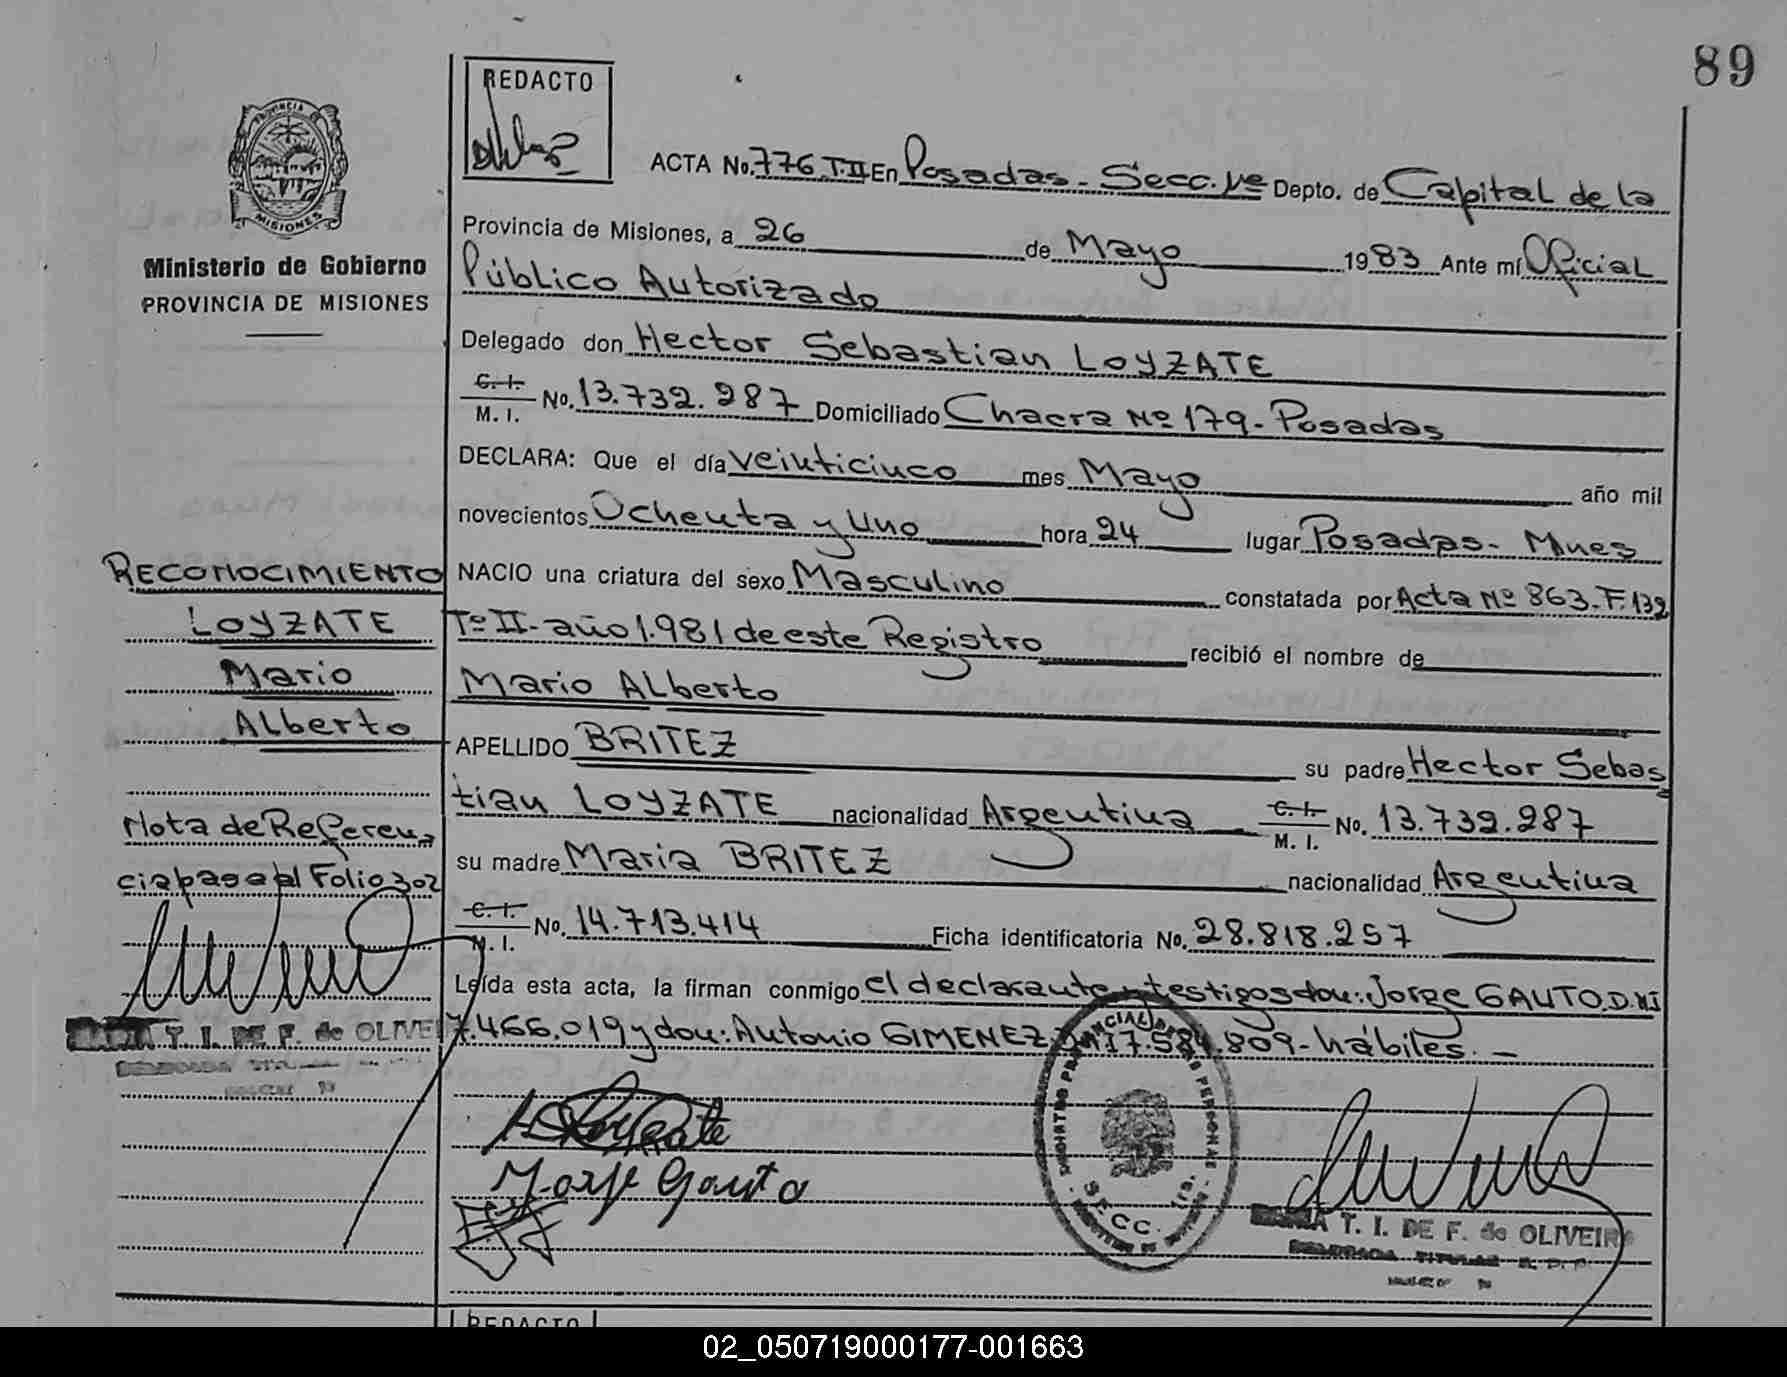 89
REDACTO
ACTA No. 776 T. II En Posadas - Secc. 1ª Depto. de Capital de la
Provincia de Misiones, a 26 de Mayo 1983 Ante mí Oficial
Público Autorizado
Delegado don Hector Sebastian LOYZATE
C. I.
M. I. No. 13.732.287 Domiciliado Chacra Nº 179 - Posadas
DECLARA: Que el día veinticinco mes Mayo año mil
novecientos Ochenta y Uno hora 24 lugar Posadas - Mnes
NACIO una criatura del sexo Masculino constatada por Acta Nº 863. F. 132
Tº II - año 1.981 de este Registro recibió el nombre de
Mario Alberto
APELLIDO BRITEZ su padre Hector Sebas
tian LOYZATE nacionalidad Argentina C. I.
M. I. No. 13.732.287
su madre Maria BRITEZ nacionalidad Argentina
C. I.
M. I. No. 14.713.414 Ficha identificatoria No. 28.818.257
Leída esta acta, la firman conmigo el declarante y testigos don: Jorge GAUTO. D.NI
7.466.019 y don: Antonio GIMENEZ 17.584.809 - hábiles. -
PROVINCIA DE
MISIONES
Ministerio de Gobierno
PROVINCIA DE MISIONES
RECONOCIMIENTO
LOYZATE
Mario
Alberto
Nota de Referen
cia pasa al Folio 302
T. I. DE F. de OLIVE
Jorge Gauto
T. I. DE F. de OLIVEIR
REDACTO
02_050719000177-001663